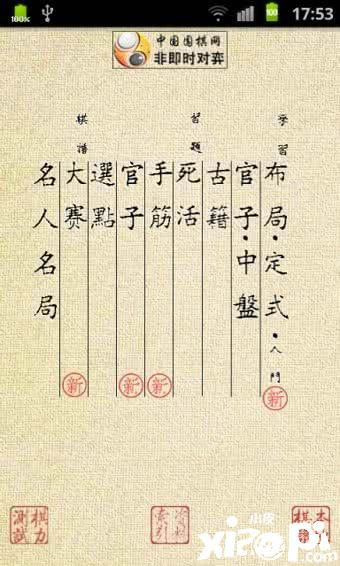 100%
100
17:53
中国围棋网
非即时对弈
学習
布局·定式·入門
新
官子·中盤
習題
古籍
死活
手筋
新
官子
新
選點
棋譜
大赛
新
名人名局
索引
棋力測試
小皮
xiaopi